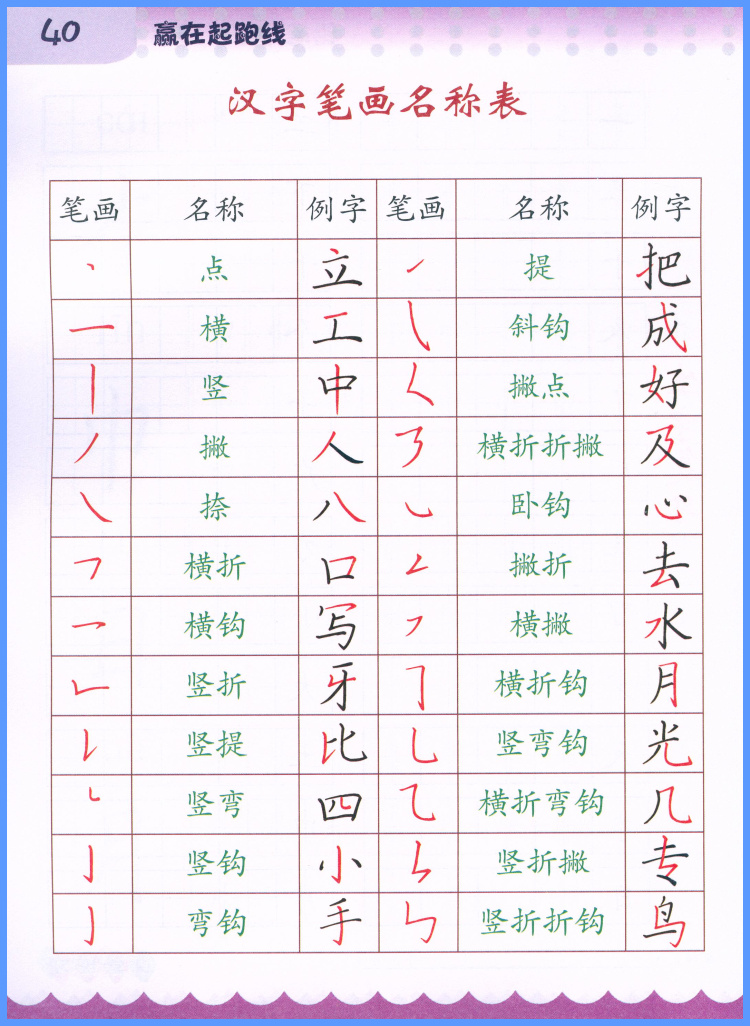 40 赢在起跑线
汉字笔画名称表
笔画 名称 例字 笔画 名称 例字
丶 点 立 ㇀ 提 把
一 横 工 ㇂ 斜钩 成
丨 竖 中 ㇛ 撇点 好
丿 撇 人 ㇋ 横折折撇 及
㇏ 捺 八 ㇃ 卧钩 心
㇕ 横折 口 ㇜ 撇折 去
㇖ 横钩 写 ㇇ 横撇 水
㇗ 竖折 牙 ㇆ 横折钩 月
㇙ 竖提 比 ㇟ 竖弯钩 光
㇄ 竖弯 四 ㇈ 横折弯钩 几
亅 竖钩 小 ㇞ 竖折撇 专
㇁ 弯钩 手 ㇉ 竖折折钩 鸟